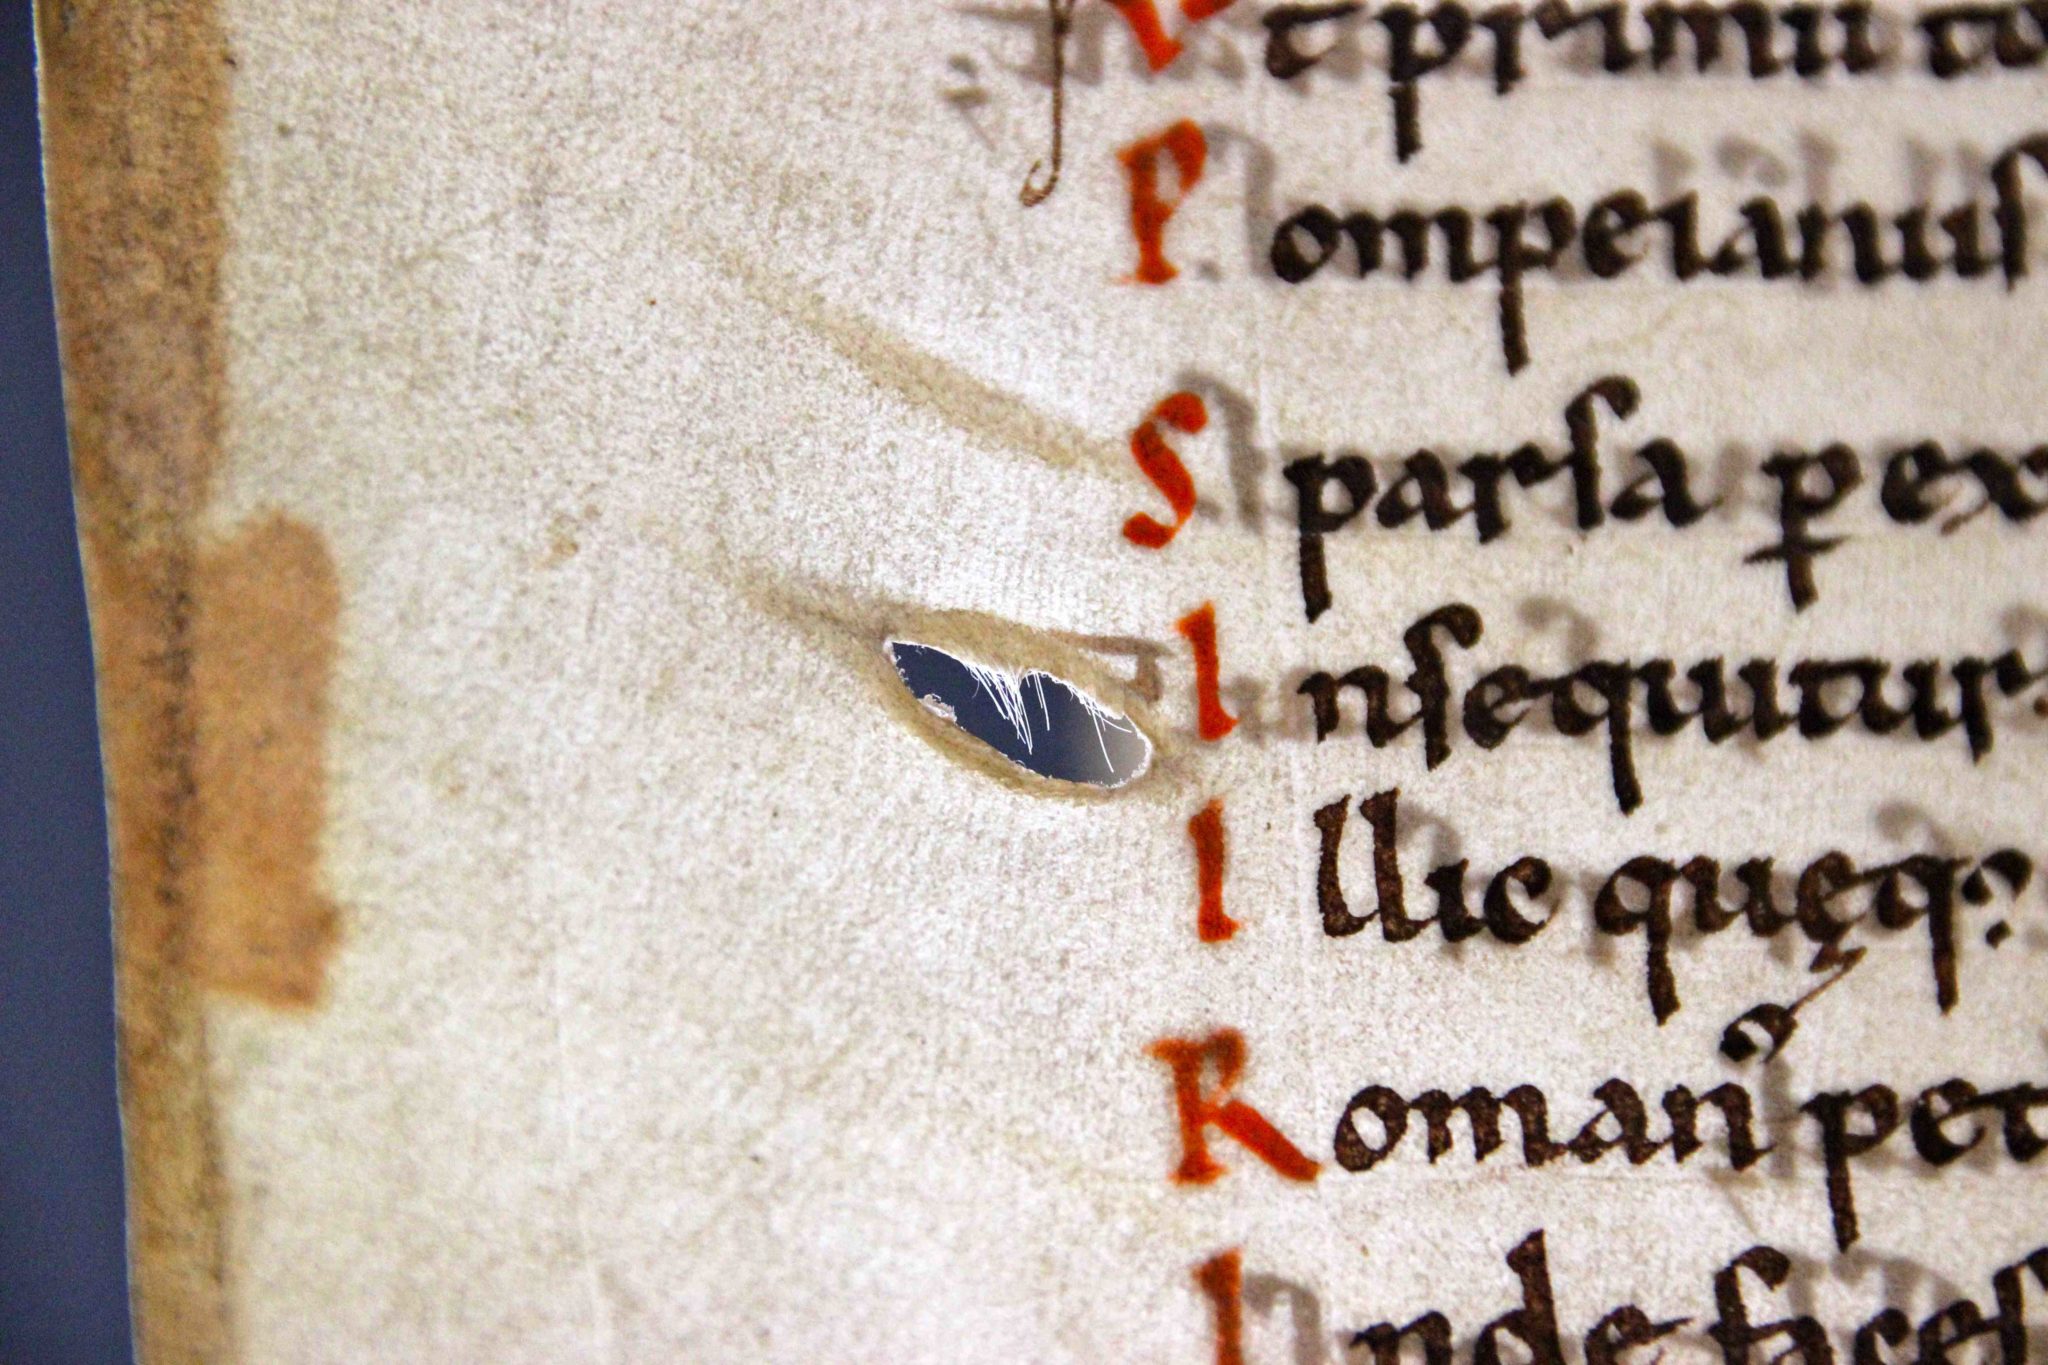 Vt primu
Pompeianus
Sparsa p ex
Insequitur
Illic quęq;
Roman pet
Inde faces